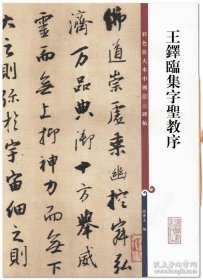 王鐸臨集字聖教序
彩色放大本中國碑帖
孫寶文 編
佛道崇虛乘幽控寂弘
濟萬品典御十方舉威
靈而無上抑神力無下
大之則彌於宇宙細之則